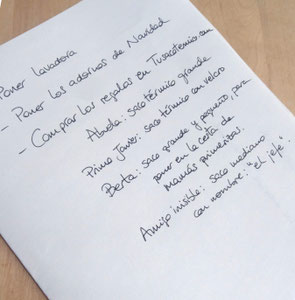 Poner lavadora
- Poner los adornos de Navidad
- Comprar los regalos en Tusacotermico.com
Abuela: saco térmico grande
Primo Javier: saco térmico con velcro
Berta: saco grande y pequeño, para
poner en la cesta de
mamás primerizas.
Amigo invisible: saco mediano
con nombre: "El jefe".